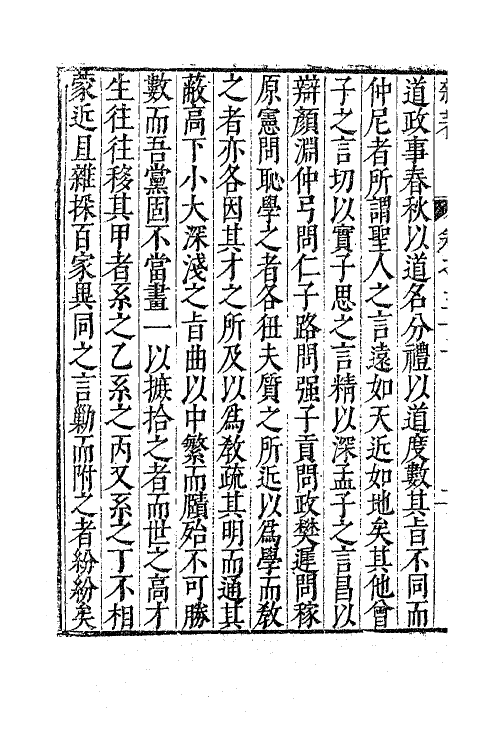 道政事春秋以道名分禮以道度數其旨不同而
仲尼者所謂聖人之言遠如天近如地矣其他曾
子之言切以實子思之言精以深孟子之言昌以
辯顏淵仲弓問仁子路問强子貢問政樊遲問稼
原憲問恥學之者各狃夫質之所近以爲學而敎
之者亦各因其才之所及以爲敎疏其明而通其
蔽高下小大深淺之旨曲以中繁而賾殆不可勝
數而吾黨固不當畫一以摭拾之者而世之高才
生往往移其甲者系之乙系之丙又系之丁不相
蒙近且雜採百家異同之言勦而附之者紛紛矣